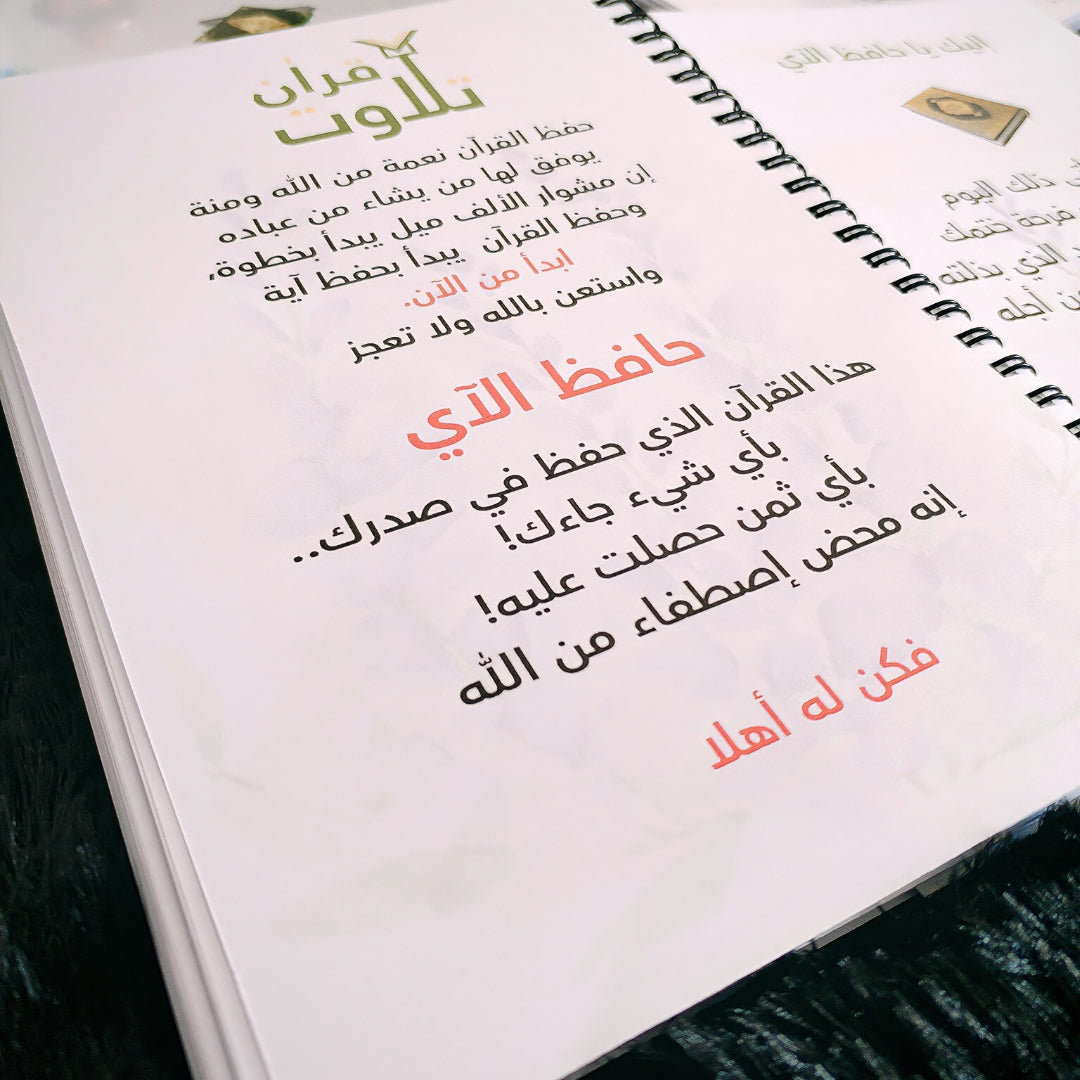 قرآن
تلاوت
حفظ القرآن نعمة من الله ومنة
يوفق لها من يشاء من عباده
إن مشوار الألف ميل يبدأ بخطوة،
وحفظ القرآن يبدأ بحفظ آية
ابدأ من الآن.
واستعن بالله ولا تعجز
حافظ الآي
هذا القرآن الذي حفظ في صدرك..
بأي شيء جاءك!
بأي ثمن حصلت عليه!
إنه محض إصطفاء من الله
فكن له أهلا
اليك يا حافظ الآي
ذلك اليوم
فرحة ختمك
الذي بذلته
أجله